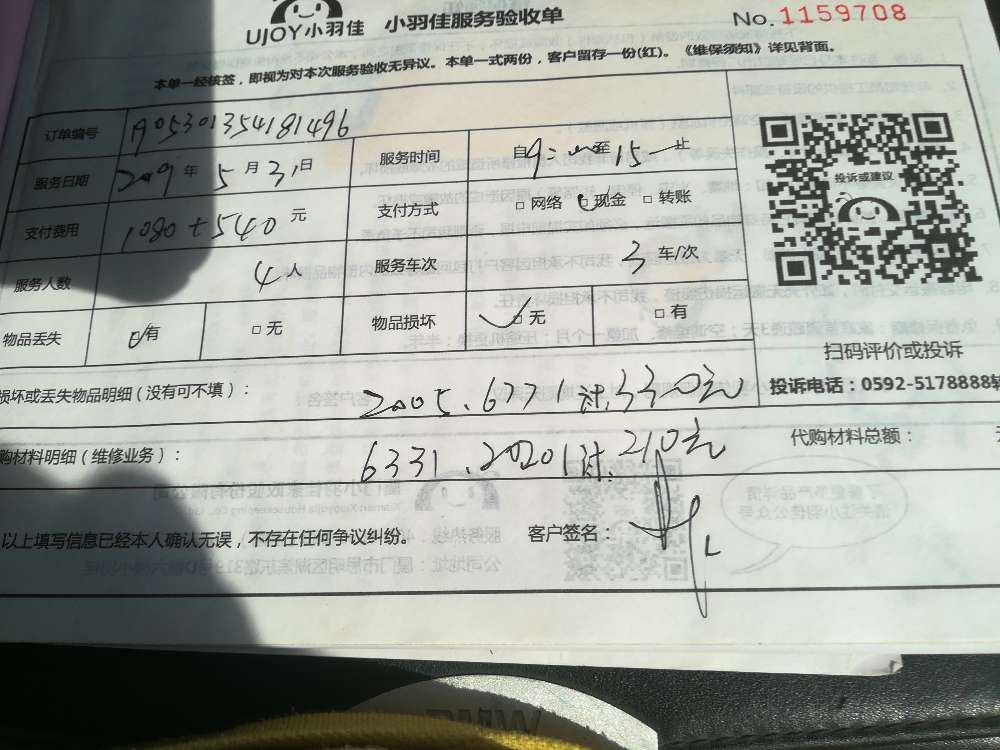 UJOY小羽佳 小羽佳服务验收单 No. 1159708
本单一经核签，即视为对本次服务验收无异议。本单一式两份，客户留存一份(红)。《维保须知》详见背面。
订单编号 A05301354181496
服务日期 2019年5月31日 服务时间 自 至15 止
支付费用 1080+540元 支付方式 □网络 □现金 □转账
投诉或建议
服务人数 4人 服务车次 3车/次
物品丢失 □有 □无 物品损坏 □无 □有
扫码评价或投诉
损坏或丢失物品明细（没有可不填）： 2005.677 计.330元
投诉电话：0592-5178888转
购材料明细（维修业务）： 6331.2020计.210元 代购材料总额：
以上填写信息已经本人确认无误，不存在任何争议纠纷。 客户签名：